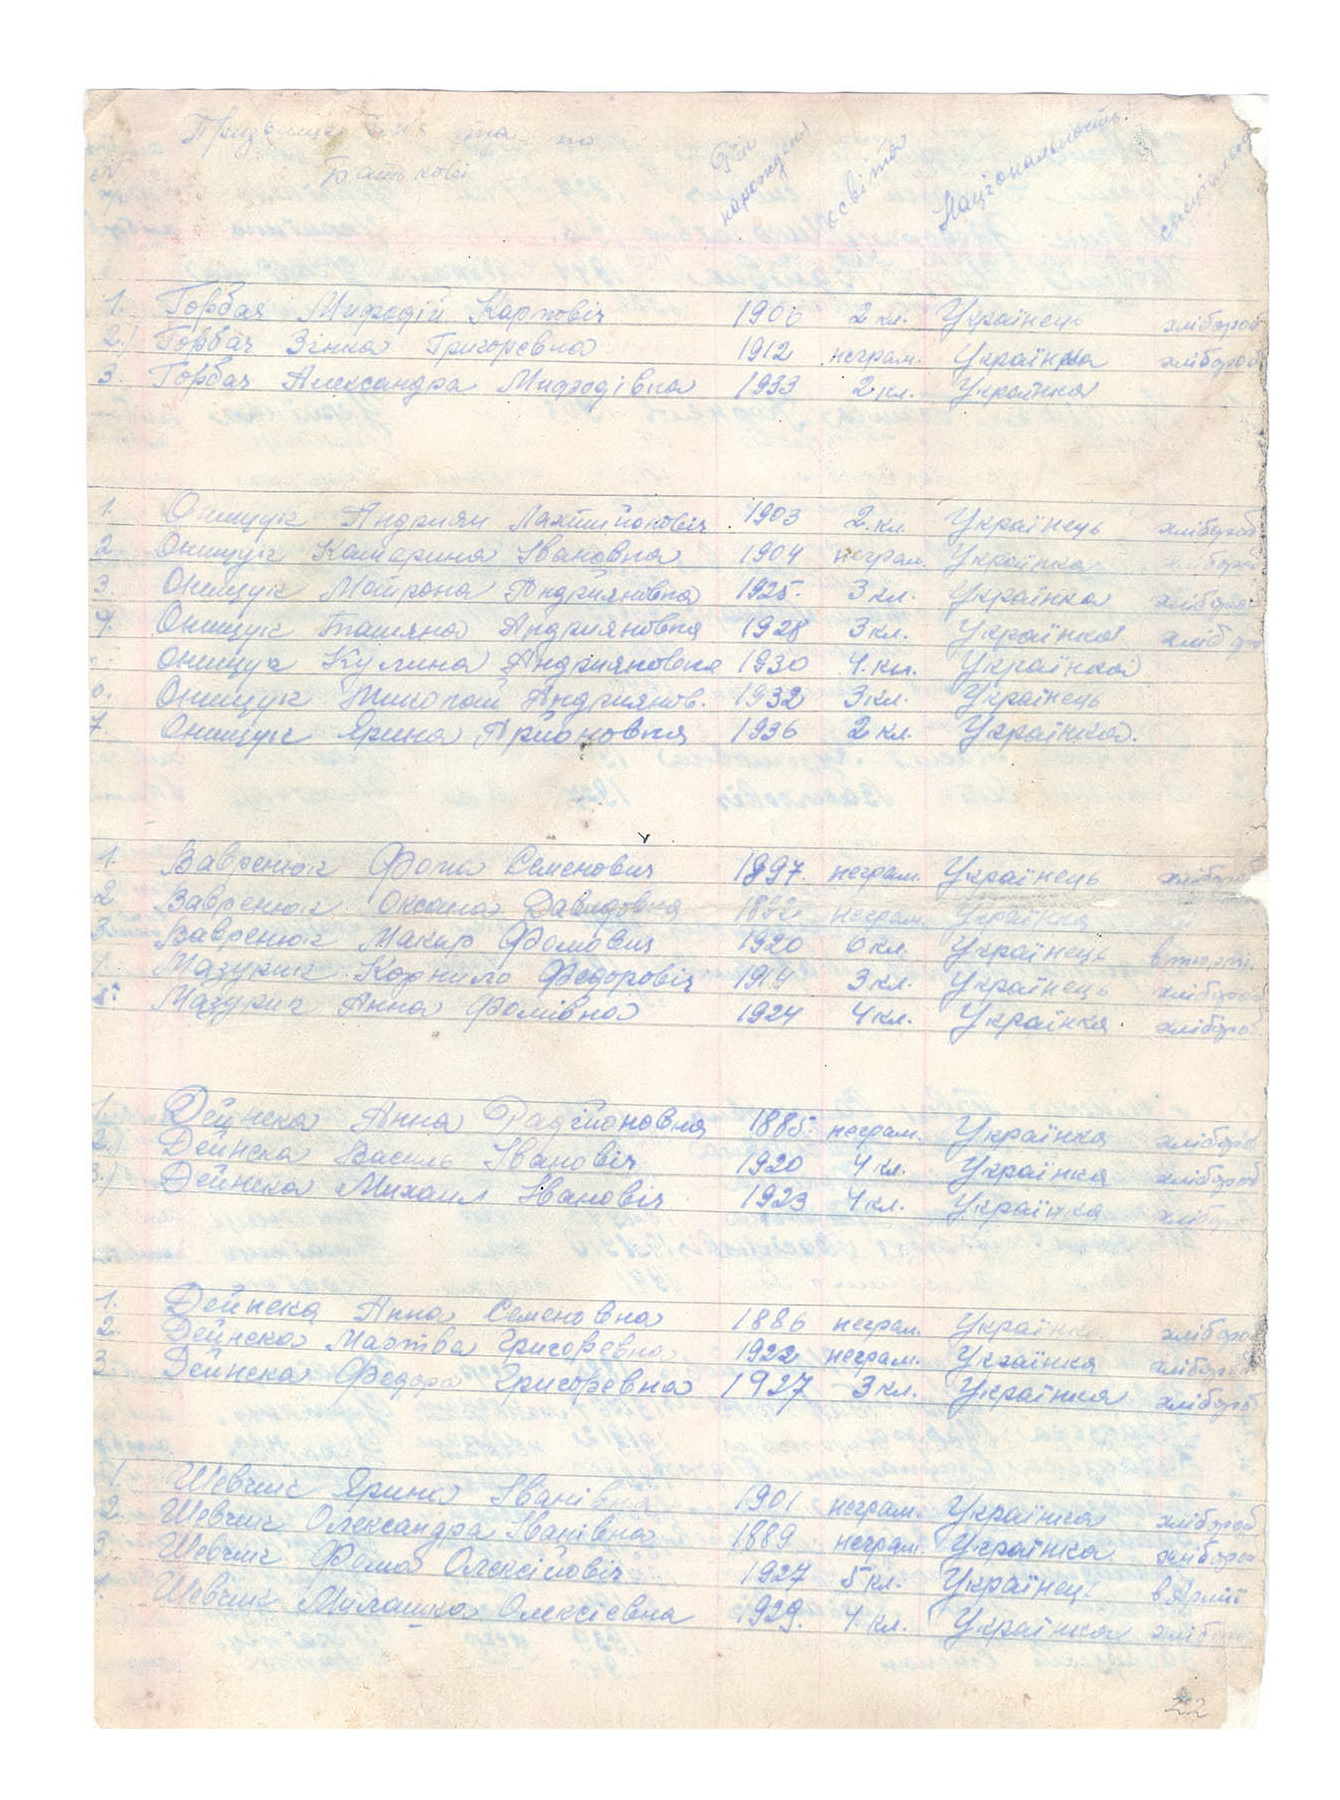 Призвище імя та по
батькові
Рік народженя
освіта
Національность
спеціальність
1. Горбач Мифодій Карповіч 1906 2 кл. Українець хлібороб
2.) Горбач Зінка Григоревна 1912 неграм. Українка хлібороб
3. Горбач Александра Мифодівна 1933 2 кл. Українка
1. Онищук Андриян 1903 2. кл. Українець хлібороб
2. Онищук Катарина Івановна 1904 неграм. Українка хлібороб
3. Онищук Мотрона Андрияновна 1925. 3 кл. Українка хлібороб
4 Онищук Татяна Андрияновна 1928 3 кл. Українка хлібороб
Онищук Кулина Андрияновна 1930 4. кл. Українка
6. Онищук Николай Андриянов. 1932 3 кл. Українець
7. Онищук Ярина 1936 2 кл. Українка.
1. Вавренюк Фома Семенович 1897. неграм. Українець хлібороб
2 Вавренюк Оксана Давидовна неграм. Українка
3. Вавренюк Макар Фомович 1920 6 кл. Українець
Мазурик Корнило Федоровіч 1914 3 кл. Українець хлібороб
5. Мазурик Анна Фомівна 1924 4 кл. Українка. хлібороб
1. Дейнека Анна Радійоновна 1885. неграм. Українка хлібороб
2.) Дейнека Василь Івановіч 1920 4 кл. Українка хлібороб
3.) Дейнека Михаил Івановіч 1923 4 кл. Українка хлібороб
1. Дейнека Анна Семеновна 1886 неграм. Українка хлібороб
2. Дейнека Мартва Григоревна 1922 неграм. Українка хлібороб
3. Дейнека Федора Григоревна 1927 3 кл. Українка хлібороб
1. Шевчик Ярина Іванівна 1901 неграм. Українка хлібороб
2. Шевчик Олександра Іванівна 1889 неграм. Українка хлібороб
3. Шевчик Фома Олексійовіч 1927 5 кл. Українец. в Армії
Шевчик Олексієвна 1929. 4. кл. Українка хлібороб
22